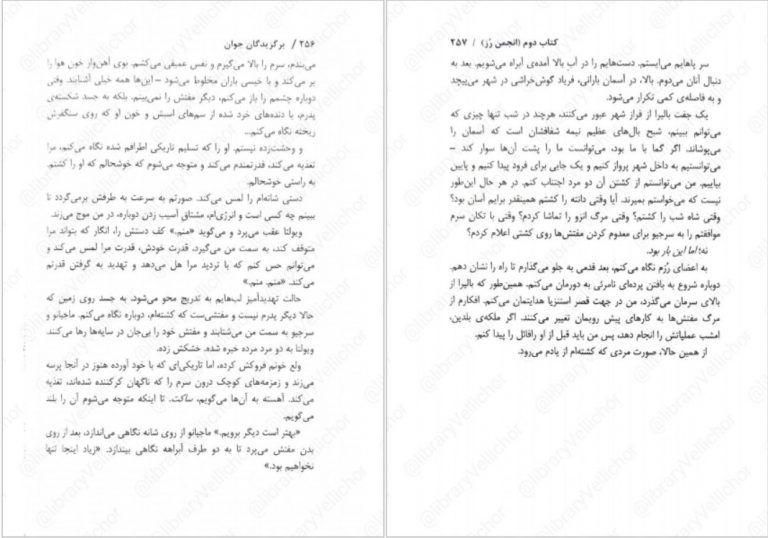 ۲۵۶ / برگزیدگان جوان
می‌بندم، سرم را بالا می‌گیرم و نفس عمیقی می‌کشم. بوی آهن‌وار خون هوا را
پر می‌کند و با خیسی باران مخلوط می‌شود – این‌ها همه خیلی آشنایند. وقتی
دوباره چشمم را باز می‌کنم، دیگر مفتش را نمی‌بینم. بلکه به جسد شکسته‌ی
پدرم، با دنده‌های خرد شده از سم‌های اسبش و خون او که روی سنگفرش
ریخته نگاه می‌کنم...
و وحشت‌زده نیستم. او را که تسلیم تاریکی اطرافم شده نگاه می‌کنم، مرا
تغذیه می‌کند، قدرتمندم می‌کند و متوجه می‌شوم که خوشحالم که او را کشتم.
به راستی خوشحالم.
دستی شانه‌ام را لمس می‌کند. صورتم به سرعت به طرفش برمی‌گردد تا
ببینم چه کسی است و انرژی‌ام، مشتاق آسیب زدن دوباره، در من موج می‌زند.
ویولتا عقب می‌پرد و می‌گوید «منم.» کف دستش را، انگار که بتواند مرا
متوقف کند، به سمت من می‌گیرد. قدرت خودش، قدرت مرا لمس می‌کند و
می‌توانم حس کنم که با تردید مرا هل می‌دهد و تهدید به گرفتن قدرتم
می‌کند. «منم. منم.»
حالت تهدیدآمیز لب‌هایم به تدریج محو می‌شود. به جسد روی زمین که
حالا دیگر پدرم نیست و مفتشی‌ست که کشته‌ام، دوباره نگاه می‌کنم. ماجیانو و
سرجیو به سمت من می‌شتابند و مفتش خود را بی‌جان در سایه‌ها رها می‌کنند.
ویولتا به دو مرد مرده خیره شده. خشکش زده.
ولع خونم فروکش کرده، اما تاریکی‌ای که با خود آورده هنوز در آنجا پرسه
می‌زند و زمزمه‌های کوچک درون سرم را که ناگهان کرکننده شده‌اند، تغذیه
می‌کند. آهسته به آن‌ها می‌گویم، ساکت. تا اینکه متوجه می‌شوم آن را بلند
می‌گویم.
«بهتر است دیگر برویم.» ماجیانو از روی شانه نگاهی می‌اندازد، بعد از روی
بدن مفتش می‌پرد تا به دو طرف آبراهه نگاهی بیندازد. «زیاد اینجا تنها
نخواهیم بود.»
کتاب دوم (انجمن رُز) / ۲۵۷
سر پاهایم می‌ایستم. دست‌هایم را در آب بالا آمده‌ی آبراه می‌شویم. بعد به
دنبال آنان می‌دوم. بالا، در آسمان بارانی، فریاد گوش‌خراشی در شهر می‌پیچد
و به فاصله‌ی کمی تکرار می‌شود.
یک جفت بالیرا از فراز شهر عبور می‌کنند، هرچند در شب تنها چیزی که
می‌توانم ببینم، شبح بال‌های عظیم نیمه شفافشان است که آسمان را
می‌پوشاند. اگر گما با ما بود، می‌توانست ما را پشت آن‌ها سوار کند –
می‌توانستیم به داخل شهر پرواز کنیم و یک جایی برای فرود پیدا کنیم و پایین
بیاییم. من می‌توانستم از کشتن آن دو مرد اجتناب کنم. در هر حال این‌طور
نیست که می‌خواستم بمیرند. آیا وقتی دانته را کشتم همینقدر برایم آسان بود؟
وقتی شاه شب را کشتم؟ وقتی مرگ انزو را تماشا کردم؟ وقتی با تکان سرم
موافقتم را به سرجیو برای معدوم کردن مفتش‌ها روی کشتی اعلام کردم؟
نه؛ اما این بار بود.
به اعضای رُزم نگاه می‌کنم، بعد قدمی به جلو می‌گذارم تا راه را نشان دهم.
دوباره شروع به بافتن پرده‌ای نامرئی به دورمان می‌کنم. همین‌طور که بالیرا از
بالای سرمان می‌گذرد، من در جهت قصر استنزیا هدایتمان می‌کنم. افکارم از
مرگ مفتش‌ها به کارهای پیش رویمان تغییر می‌کنند. اگر ملکه‌ی بلدین،
امشب عملیاتش را انجام دهد، پس من باید قبل از او رافائل را پیدا کنم.
از همین حالا، صورت مردی که کشته‌ام از یادم می‌رود.
@libraryVellichor